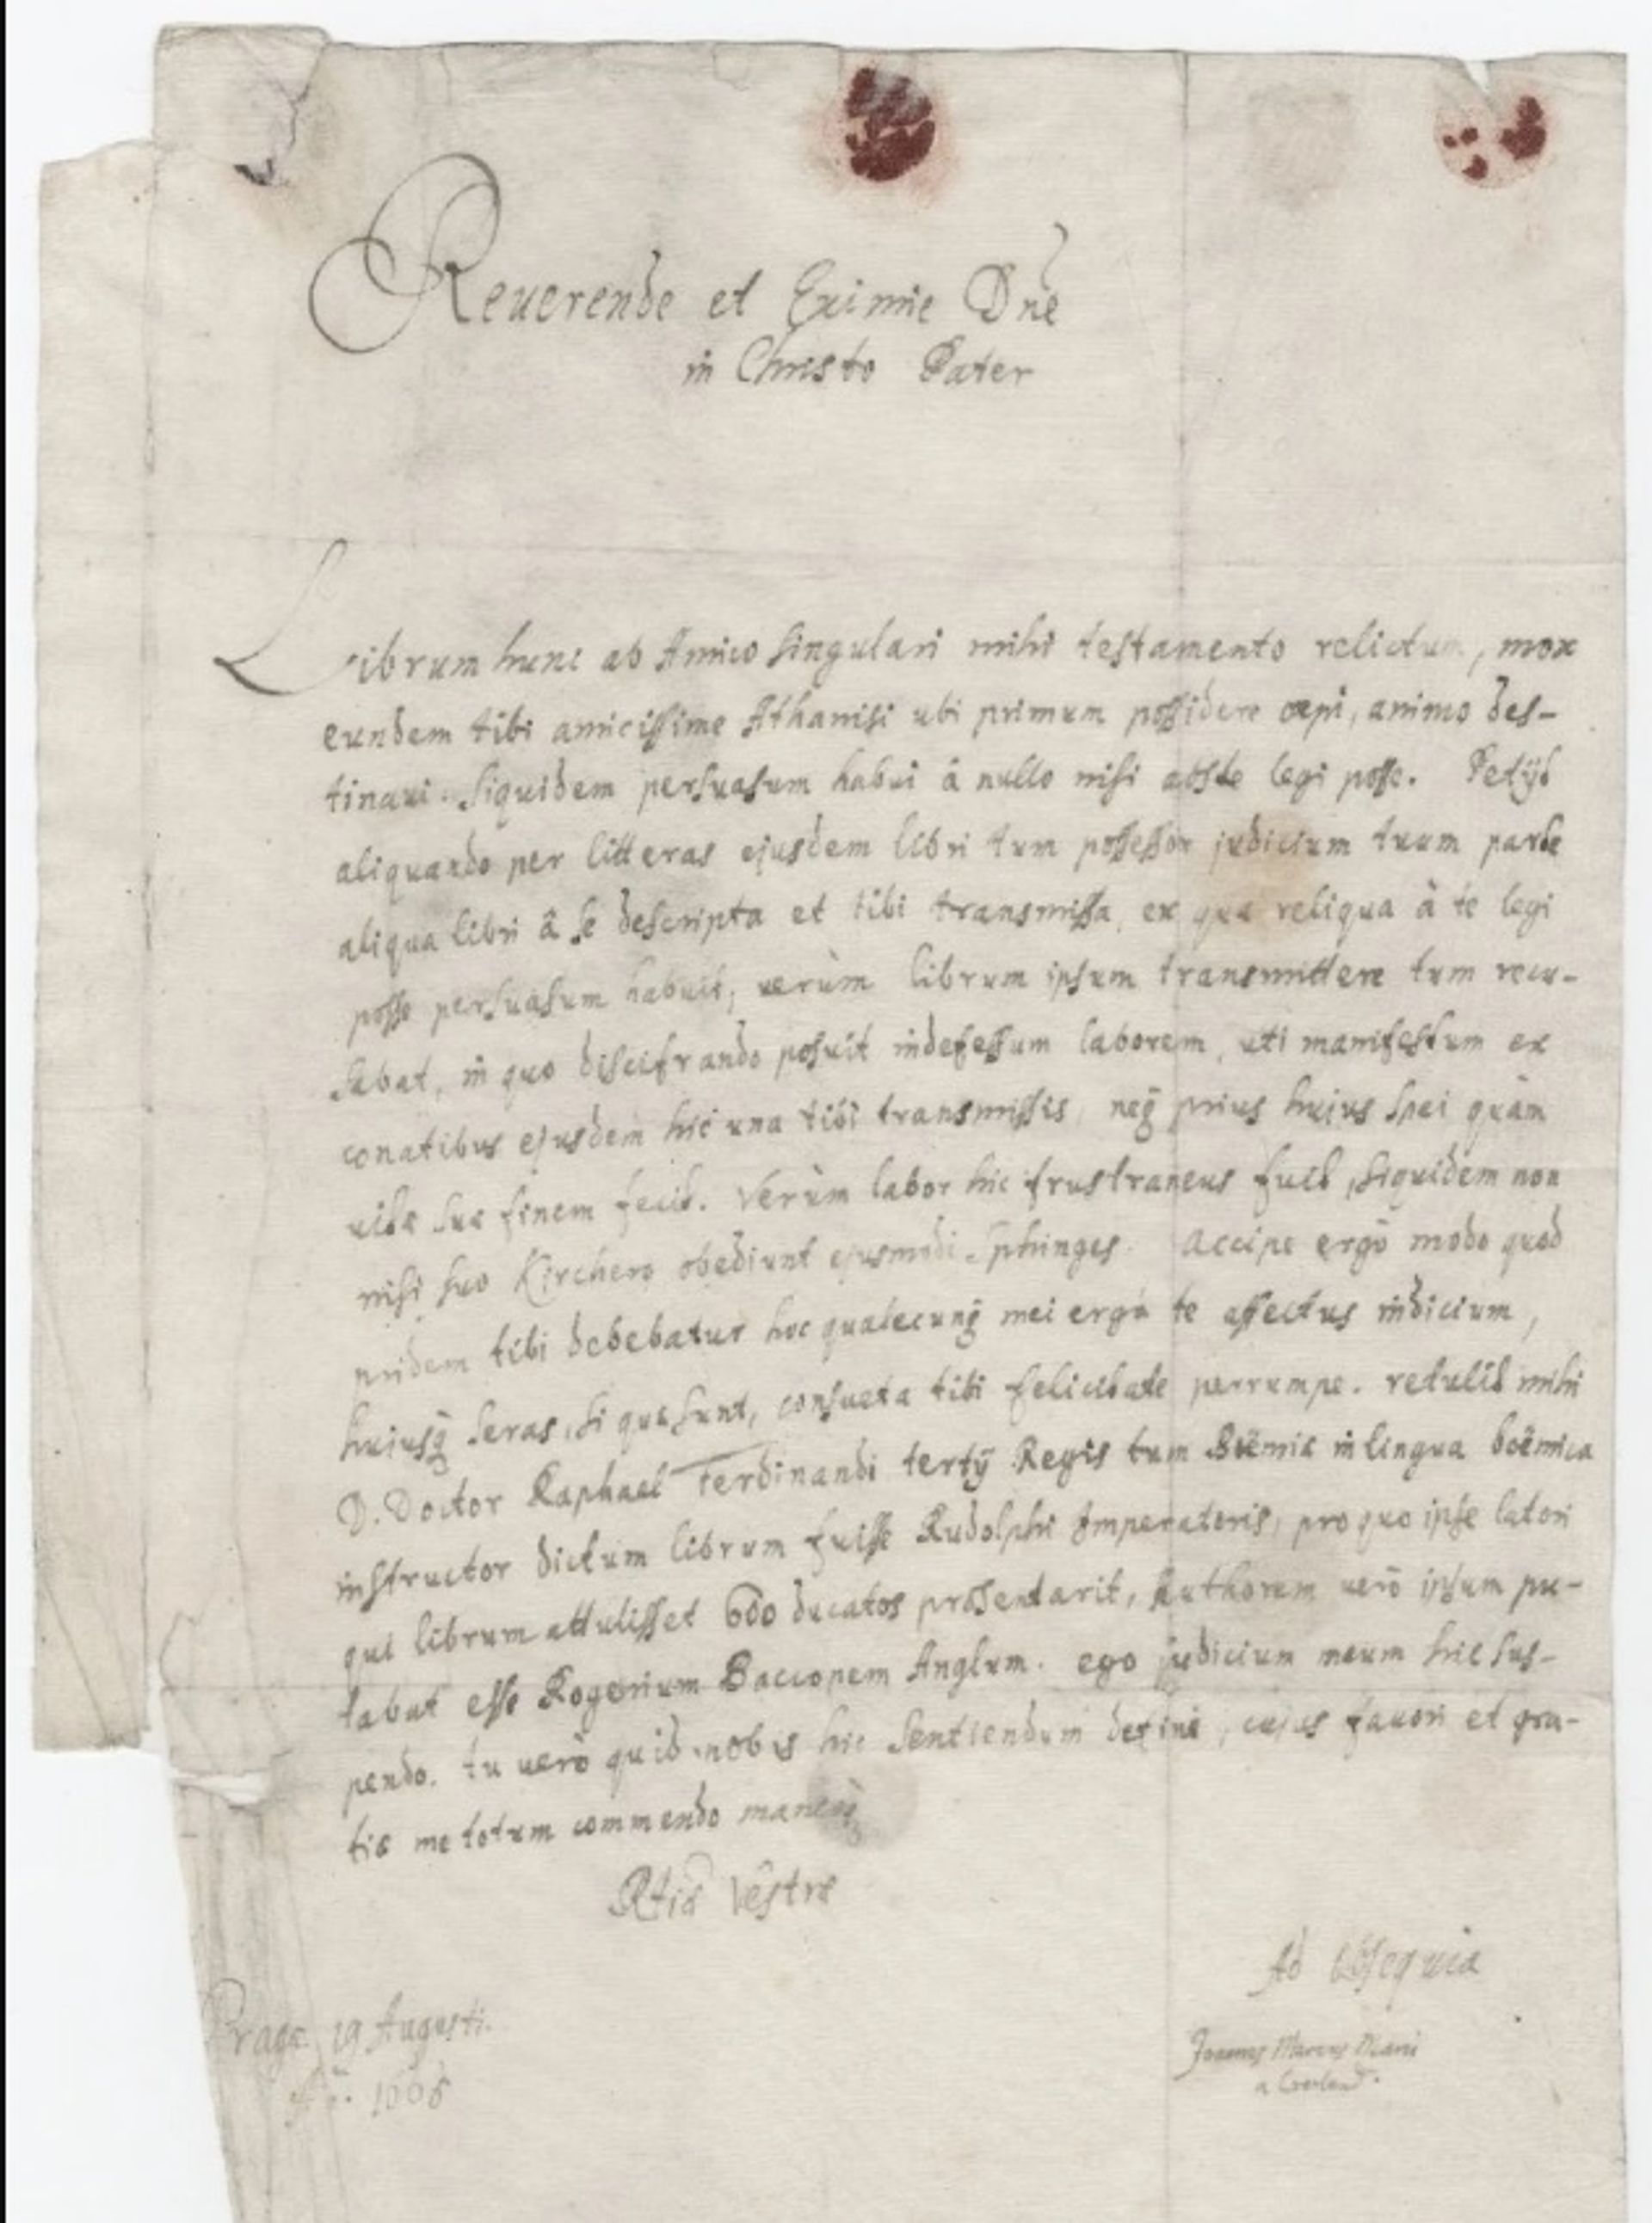 Reuerende et Eximie Dñe
in Christo Pater
Librum hunc ab Amico singulari mihi testamento relictum, mox
eundem tibi amicissime Athanisi ubi primum possidere cœpi, animo des-
tinaui. siquidem persuasum habui â nullo nisi abste legi posse. Petijt
aliquando per litteras ejusdem libri tum possessor judicium tuum parte
aliqua libri â se descripta et tibi transmissa, ex qua reliqua à te legi
posse persuasum habuit; uerùm librum ipsum transmittere tum recu-
sabat, in quo discifrando posuit indefessum laborem, uti manifestum ex
conatibus ejusdem hic una tibi transmissis, neq̃ prius huius spei quàm
uitæ suæ finem fecit. Verùm labor hic frustraneus fuit, siquidem non
nisi suo Kirchero obediunt ejusmodi Sphinges. Accipe ergò modo quod
pridem tibi debebatur hoc qualecunq̃ mei erga te affectus indicium,
huiusq̃ seras, si quæ sunt, consueta tibi felicitate perrumpe. retulit mihi
D. Doctor Raphael Ferdinandi tertij Regis tum Boëmiæ in lingua boëmica
instructor dictum librum fuisse Rudolphi Imperatoris, pro quo ipse latori
qui librum attulisset 600 ducatos præsentarit, Authorem uerò ipsum pu-
tabat esse Rogerium Bacconem Anglum. ego judicium meum hic sus-
pendo. tu uerò quid nobis hic sentiendum defini, cujus fauori et gra-
tiæ me totum commendo maneoq̃
Rtiæ Vestræ
Ad Obsequia
Joannes Marcus Marci
a Cronland.
Pragæ 19 Augusti.